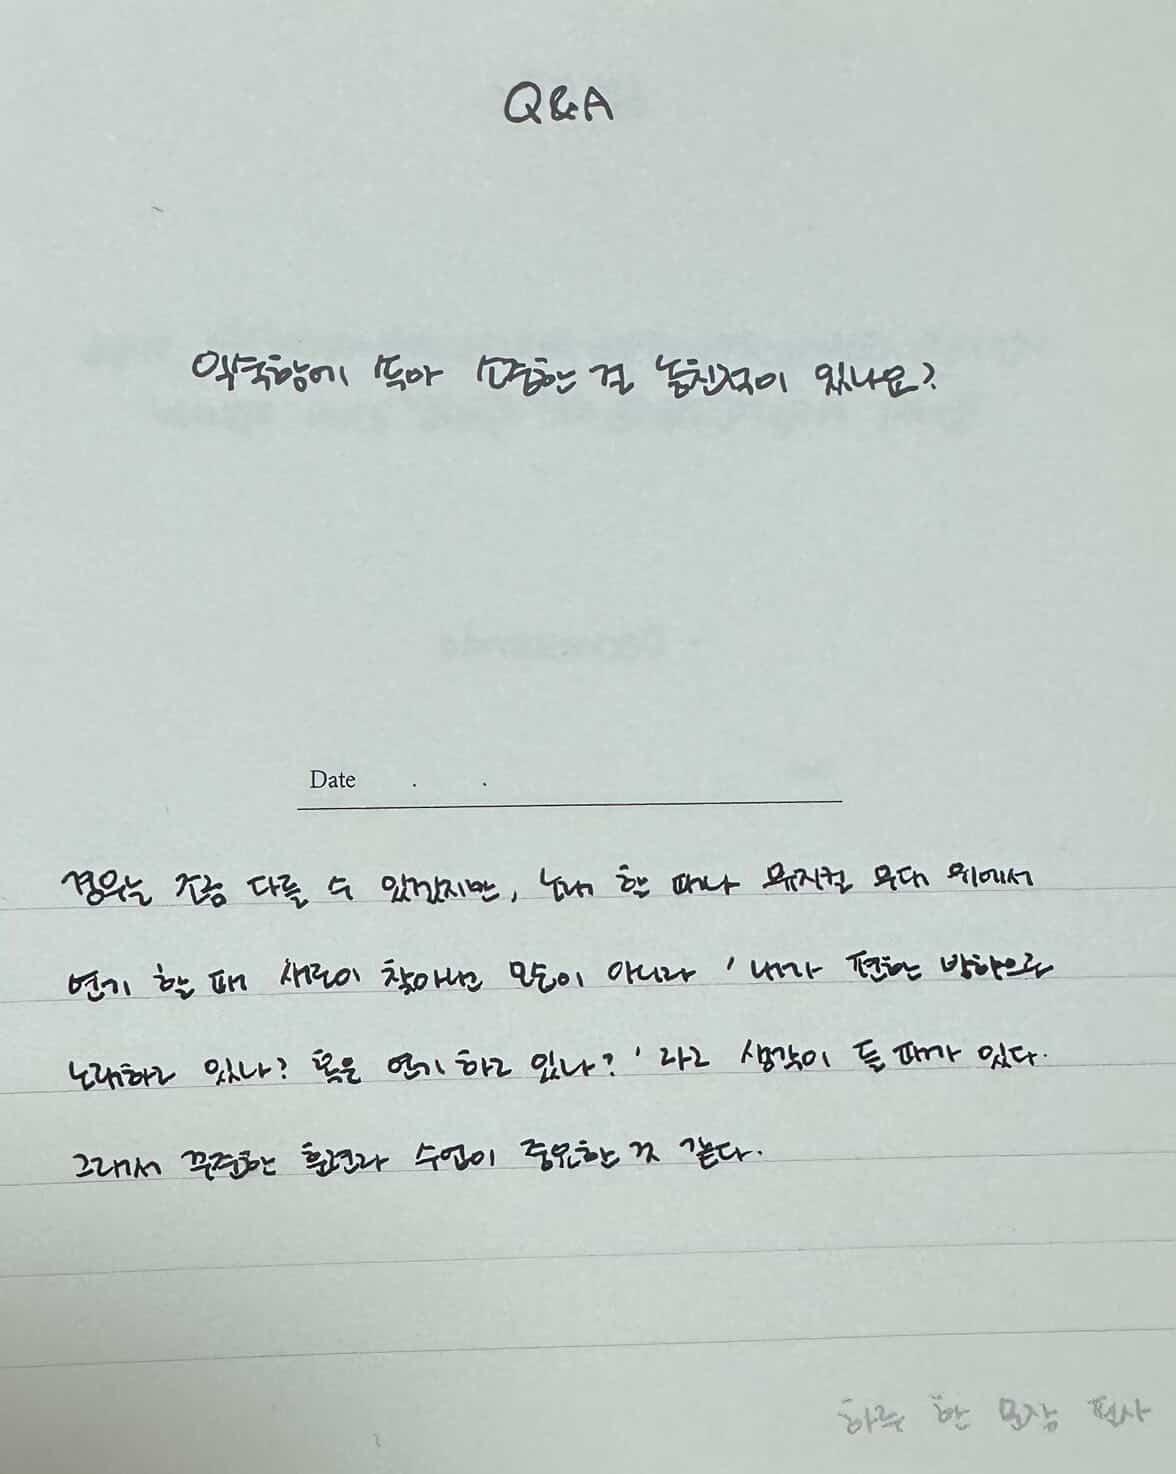 Q&A
익숙함에 속아 소중한 걸 놓친적이 있나요?
Date . .
경우는 조금 다를 수 있겠지만, 노래 할 때나 뮤지컬 무대 위에서
연기 할 때 새로이 찾아나선 모습이 아니라 '내가 편한 방향으로
노래하고 있나? 혹은 연기 하고 있나?' 라고 생각이 들 때가 있다.
그래서 꾸준한 훈련과 수업이 중요한 것 같다.
하루 한 문장 필사